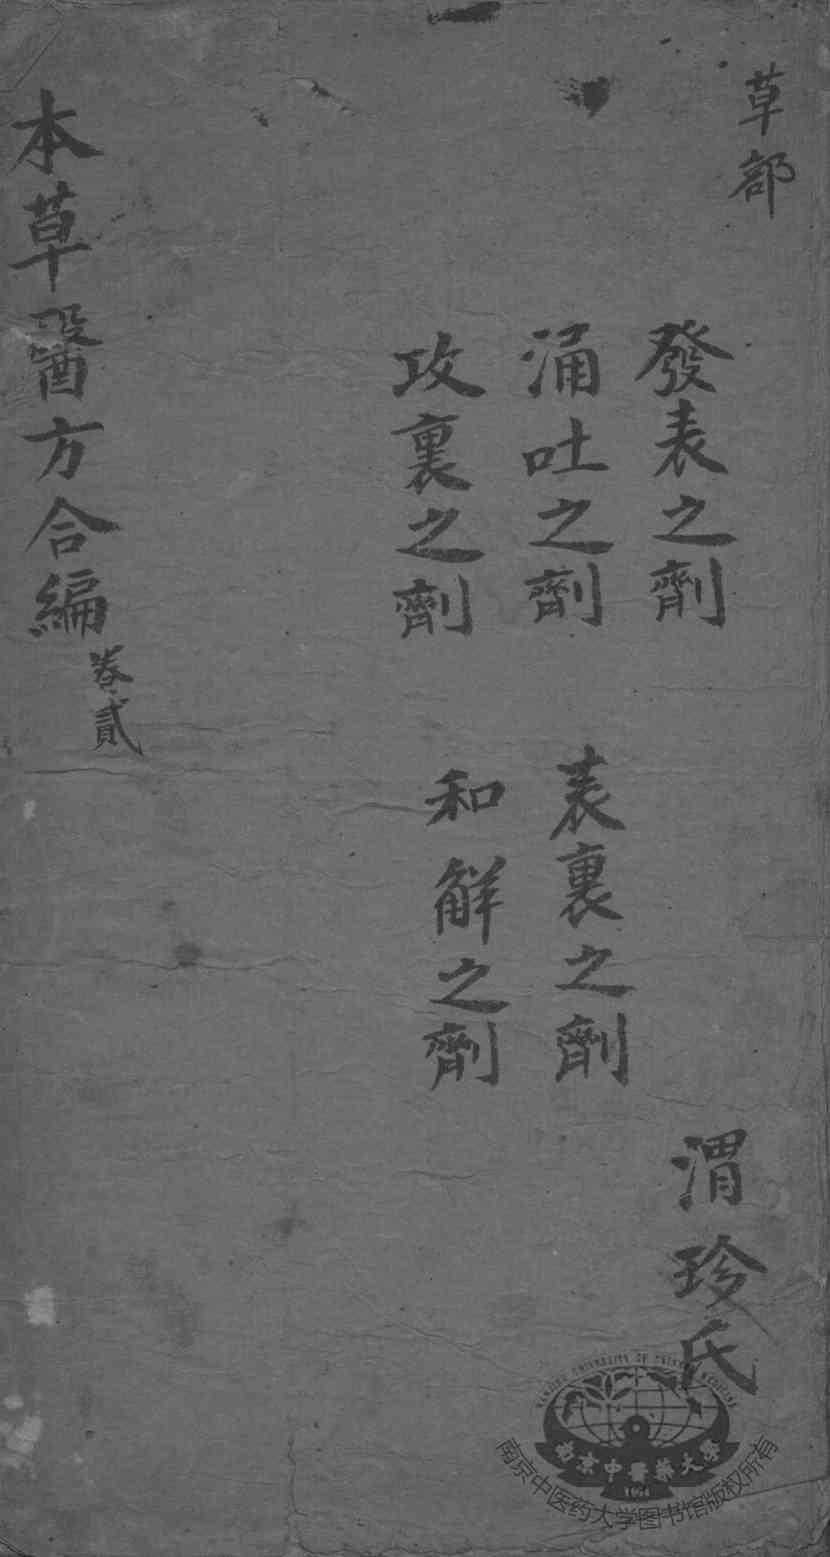 草部
發表之劑
涌吐之劑
攻裏之劑
表裏之劑
和解之劑
本草醫方合編
卷貳
渭珍氏
NANJING UNIVERSITY OF CHINESE MEDICINE
南京中醫藥大學
1954
南京中医药大学图书馆版权所有